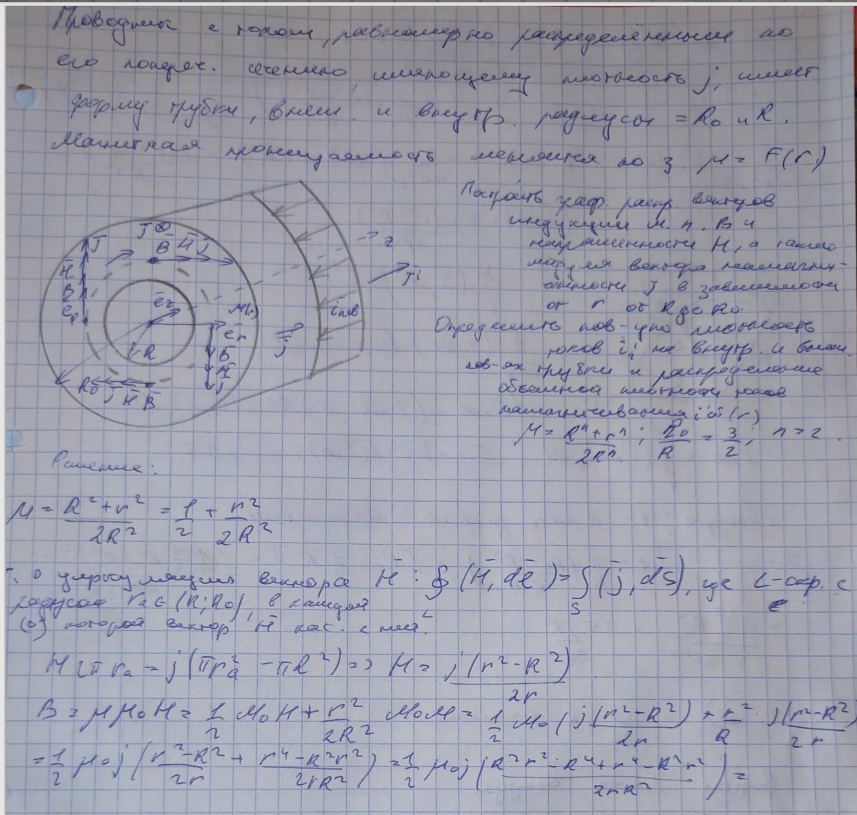 Проводник с током, равномерно распределённым по
его попереч. сечению, имеющему плотность j, имеет
форму трубки, внеш. и внутр. радиусы = R₀ и R.
Магнитная проницаемость меняется по з. μ = F(r)
Построить граф. распр. векторов
индукции м. п. B и
напряженности H, а также
модуля вектора намагни-
ченности J в зависимости
от r от R до R₀.
Определить пов-ую плотность
токов i'ₙ на внутр. и внеш.
пов-ях трубки и распределение
объемной плотности токов
намагничивания i'об(r)
μ = (Rⁿ + rⁿ)/(2Rⁿ); R₀/R = 3/2; n = 2
Решение:
μ = (R² + r²)/(2R²) = 1/2 + r²/(2R²)
Т. о циркуляции вектора H̄: ∮(H̄, dℓ̄) = ∫_S (j̄, dS̄), где L-окр. с
радиусом rₐ ∈ (R; R₀), в каждой
(·) которой вектор H̄ кас. к ней.
H 2π rₐ = j(πrₐ² − πR²) => H = j(r² − R²)/(2r)
B = μμ₀H = 1/2 μ₀H + r²/(2R²) μ₀H = 1/2 μ₀(j(r²−R²)/(2r) + r²/R · j(r²−R²)/(2r)
= 1/2 μ₀j((r²−R²)/(2r) + (r⁴−R²r²)/(2rR²)) = 1/2 μ₀j((R²r²−R⁴+r⁴−R²r²)/(2rR²)) =